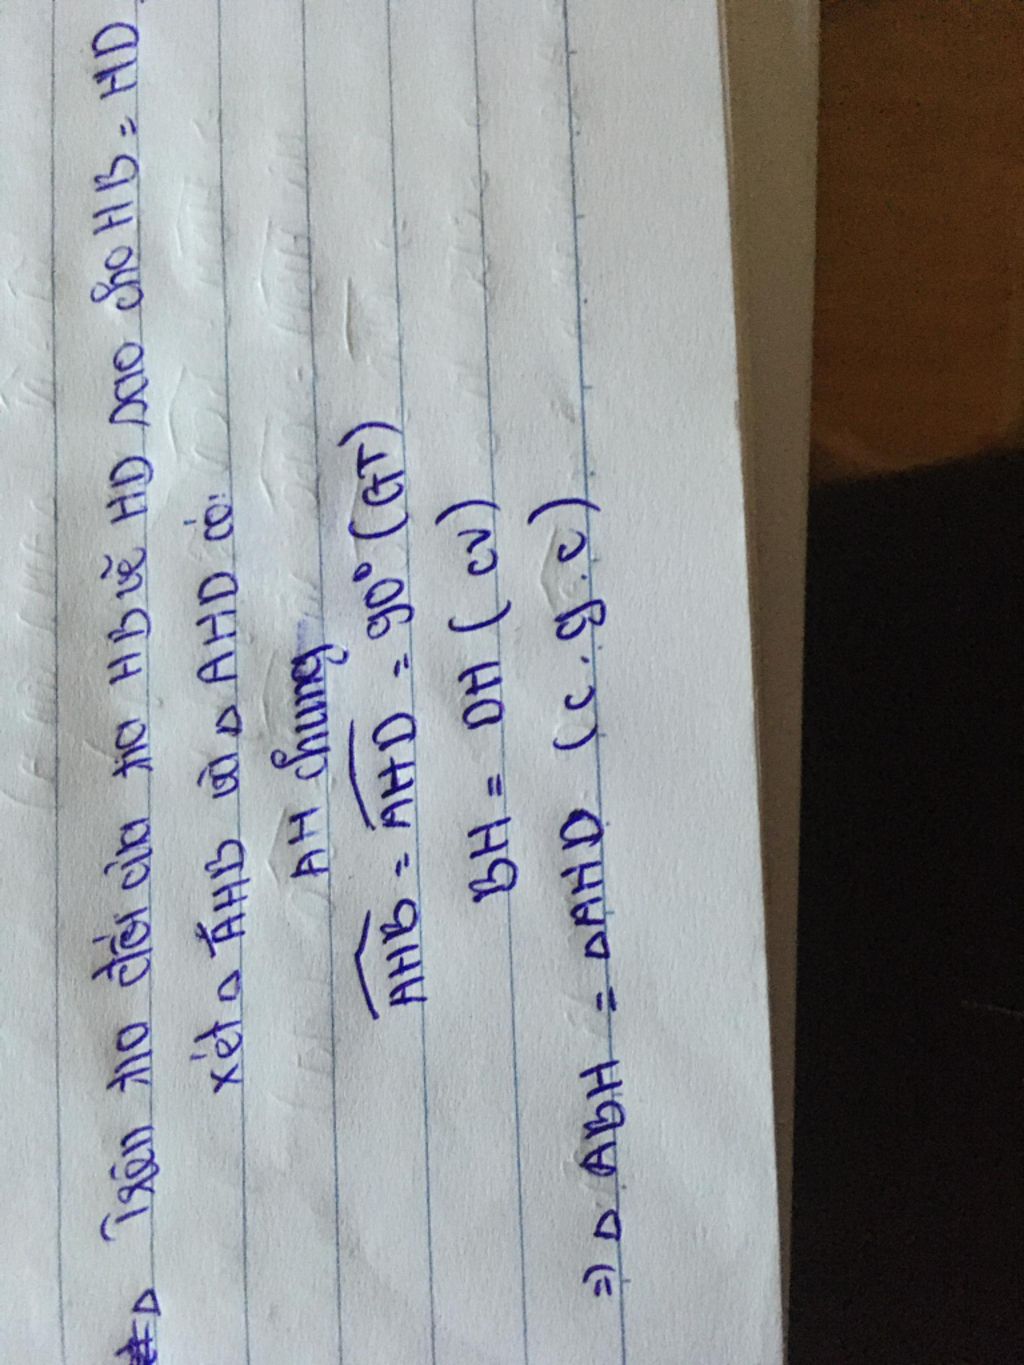 Trên tia đối của tia HB vẽ HD sao cho HB = HD.
Xét △ AHB và △ AHD có:
AH chung
AHB = AHD = 90° (GT)
BH = DH ( cv)
=) △ ABH = △AHD (c.g.c)